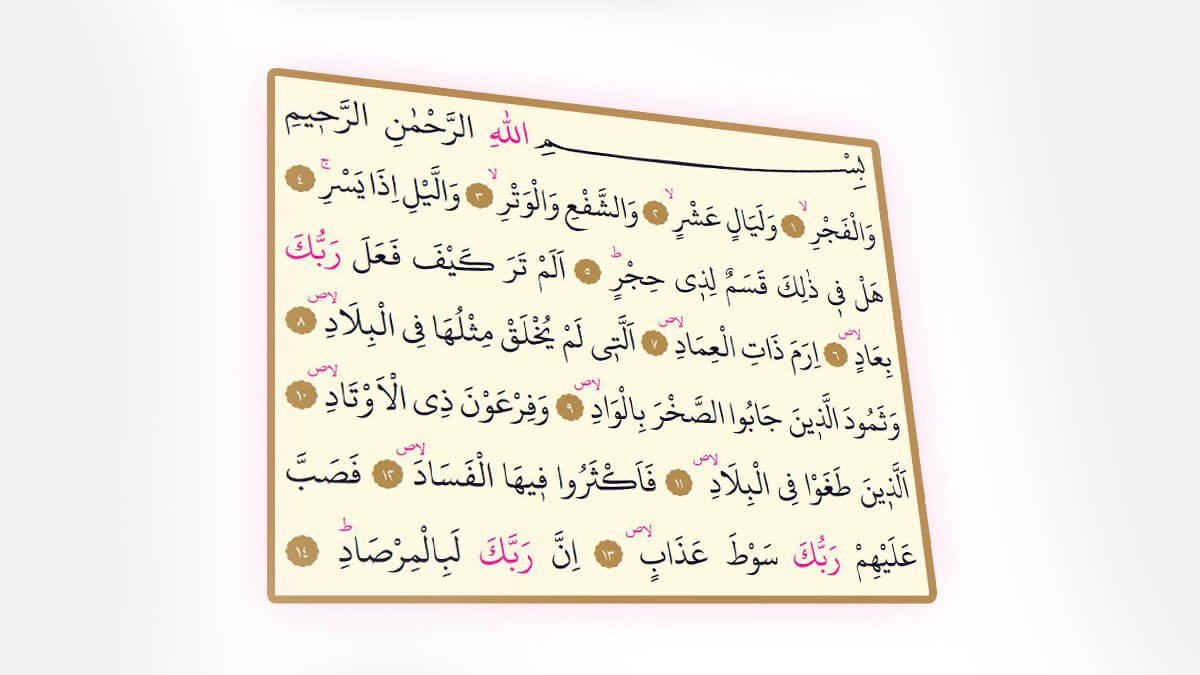 بِسْمِ اللّٰهِ الرَّحْمٰنِ الرَّح۪يمِ
وَالْفَجْرِۙ ﴿١﴾ وَلَيَالٍ عَشْرٍۙ ﴿٢﴾ وَالشَّفْعِ وَالْوَتْرِۙ ﴿٣﴾ وَالَّيْلِ اِذَا يَسْرِۚ ﴿٤﴾
هَلْ ف۪ي ذٰلِكَ قَسَمٌ لِذ۪ي حِجْرٍۜ ﴿٥﴾ اَلَمْ تَرَ كَيْفَ فَعَلَ رَبُّكَ
بِعَادٍۙۖ ﴿٦﴾ اِرَمَ ذَاتِ الْعِمَادِۙۖ ﴿٧﴾ اَلَّت۪ي لَمْ يُخْلَقْ مِثْلُهَا فِي الْبِلَادِۙۖ ﴿٨﴾
وَثَمُودَ الَّذ۪ينَ جَابُوا الصَّخْرَ بِالْوَادِۙۖ ﴿٩﴾ وَفِرْعَوْنَ ذِي الْاَوْتَادِۙۖ ﴿١٠﴾
اَلَّذ۪ينَ طَغَوْا فِي الْبِلَادِۙۖ ﴿١١﴾ فَاَكْثَرُوا ف۪يهَا الْفَسَادَۙۖ ﴿١٢﴾ فَصَبَّ
عَلَيْهِمْ رَبُّكَ سَوْطَ عَذَابٍۙۖ ﴿١٣﴾ اِنَّ رَبَّكَ لَبِالْمِرْصَادِۜ ﴿١٤﴾